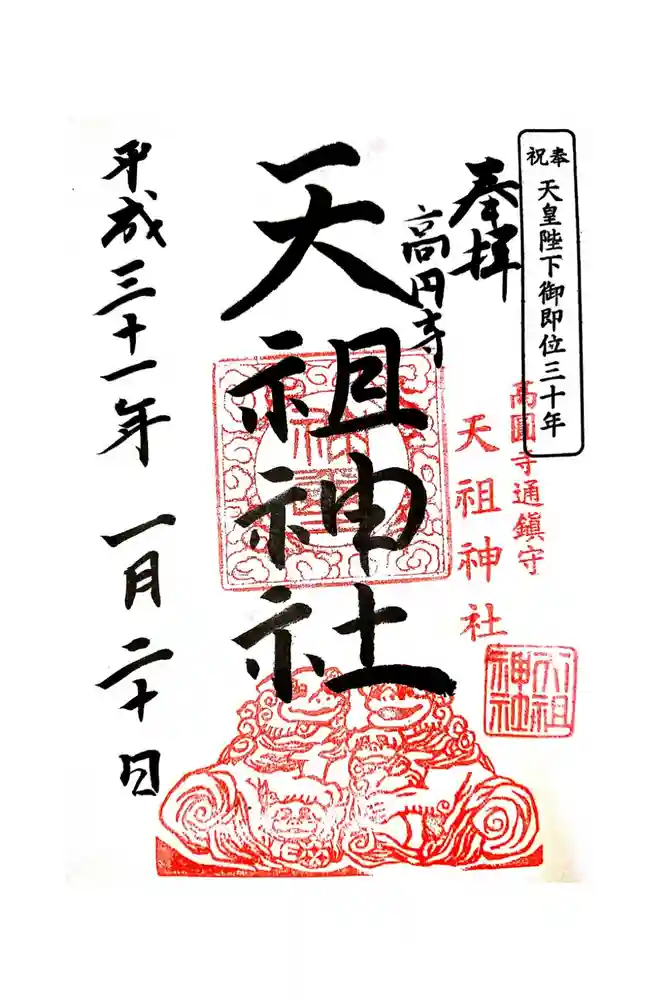 奉祝
天皇陛下御即位三十年
奉拝
高円寺
高圓寺通鎮守
天祖神社
天祖神社
天祖神社
平成三十一年 一月二十日